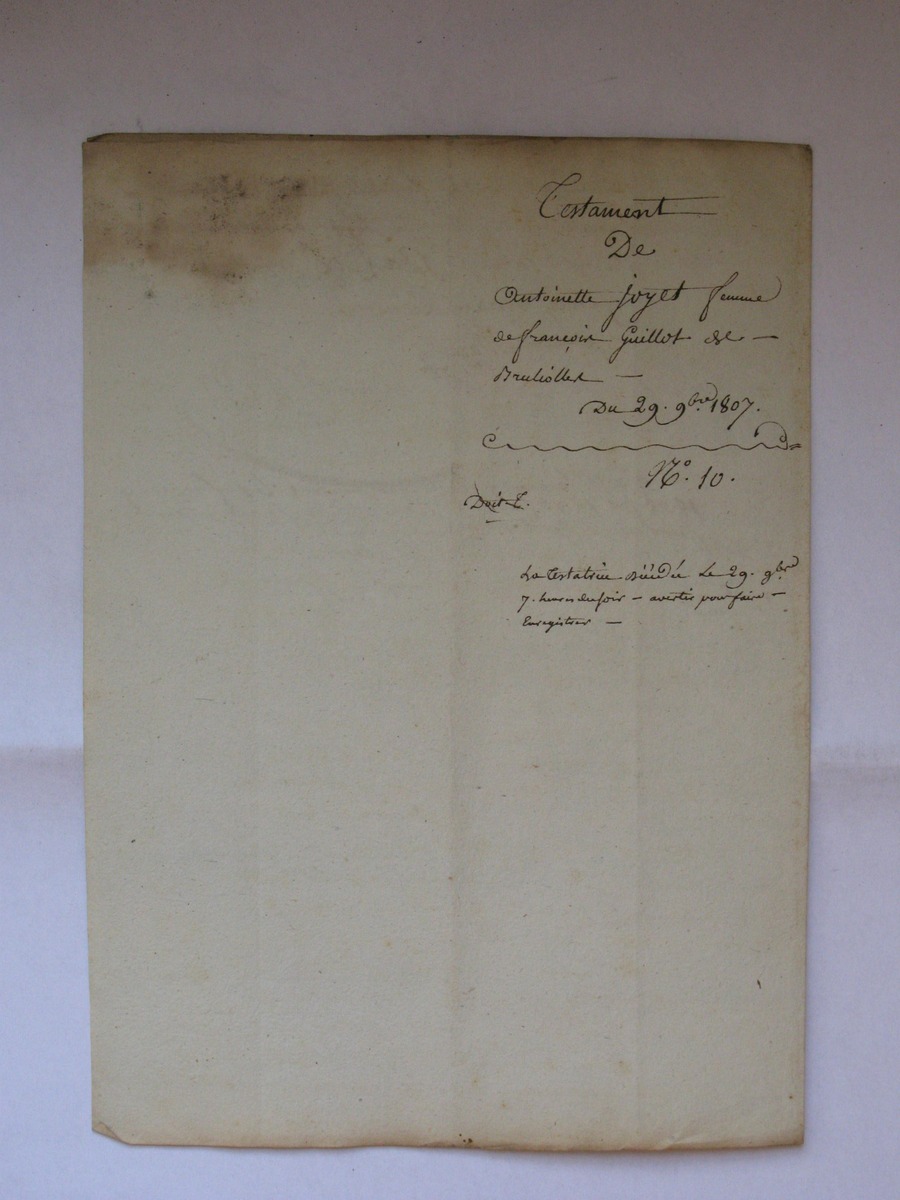 Testament
De
Antoinette joyet femme
de françois Guillot de —
Brulliolles —
Du 29. 9bre 1807.
N°. 10.
Doit
La testatrice Le 29. 9bre
7. heures du soir — avertir pour faire —
Enregistrer —